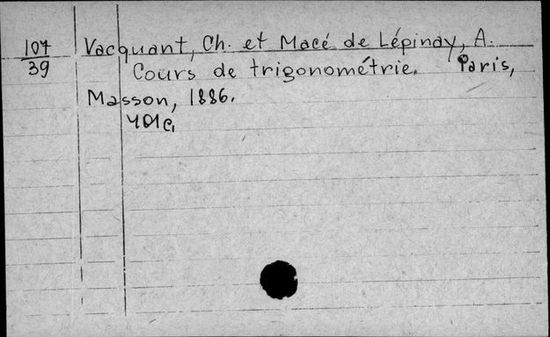 107
39
Vacquant, Ch. et Macé de Lépinay, A.
Cours de trigonométrie. Paris,
Masson, 1886.